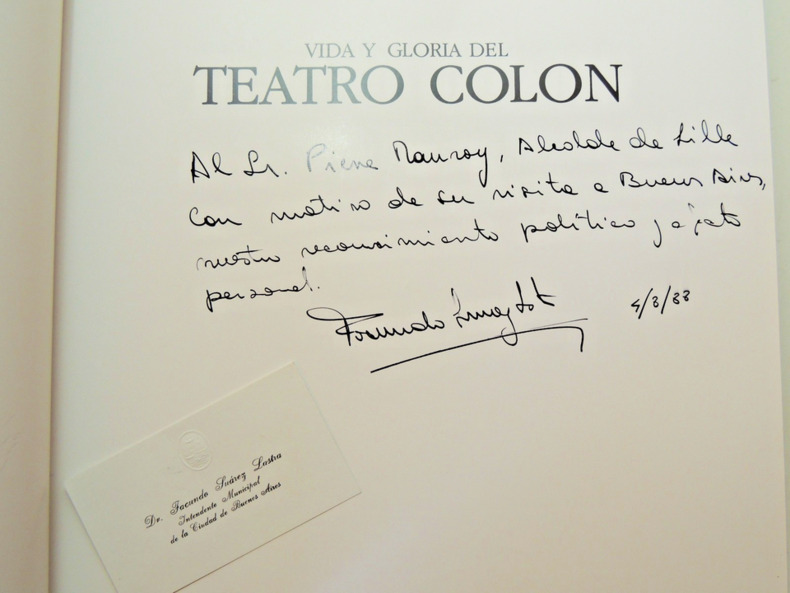 VIDA Y GLORIA DEL
TEATRO COLON
Al Sr. Pierre Mauroy, Alcalde de Lille
con motivo de su visita a Buenos Aires,
nuestro reconocimiento político y afecto
personal.
Facundo Suárez Lastra
4/3/88
Dr. Facundo Suárez Lastra
Intendente Municipal
de la Ciudad de Buenos Aires